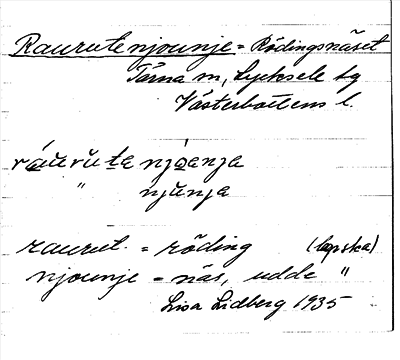 Raurutenjounje = Rödingsnäset
Tärna sn, Lycksele lg
Västerbottens l.
ráuŕuta njoanja
" njŭnja
raurut. = röding (lapska)
njounje = näs, udde "
Lisa Lidberg 1935